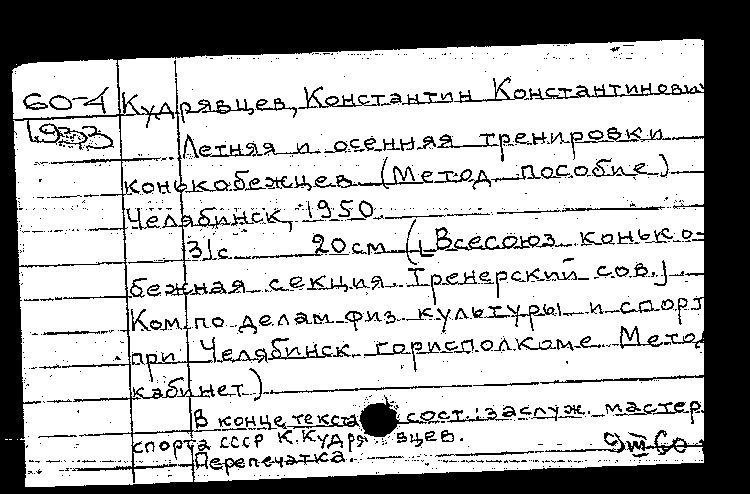 60-4 Кудрявцев, Константин Константинови
Летняя и осенняя тренировки
конькобежцев (Метод пособие)
Челябинск, 1950.
31с 20см ([Всесоюз. конько-
бежная секция. Тренерский сов.].
Ком по делам физ. культуры и спорт
при Челябинск горисполкоме. Метод
кабинет)
В конце текста сост.: заслуж. мастер
спорта СССР К. Кудрявцев.
Перепечатка.